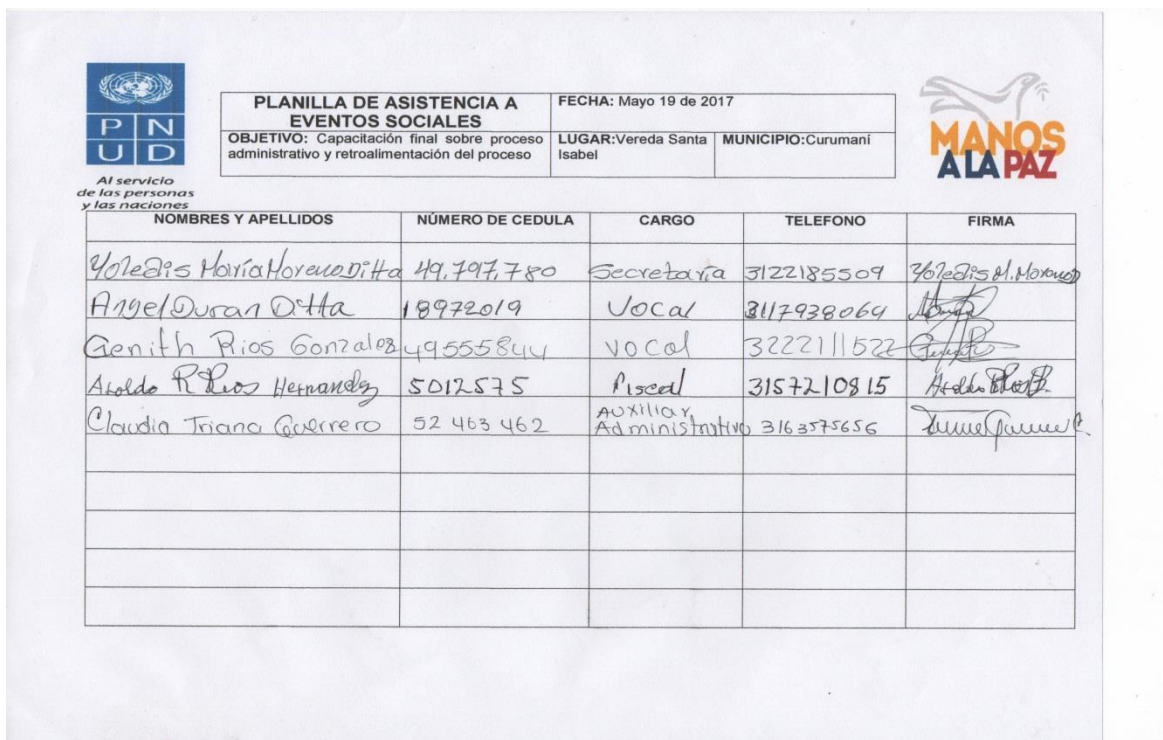 P N
U D
Al servicio
de las personas
y las naciones
PLANILLA DE ASISTENCIA A
EVENTOS SOCIALES
FECHA: Mayo 19 de 2017
OBJETIVO: Capacitación final sobre proceso
administrativo y retroalimentación del proceso
LUGAR:Vereda Santa
Isabel
MUNICIPIO:Curumaní
MANOS
A LA PAZ
NOMBRES Y APELLIDOS NÚMERO DE CEDULA CARGO TELEFONO FIRMA
Yoledis María Moreno Ditta 49.797.780 Secretaria 3122185509 Yoledis M. Moreno D
Angel Duran Ditta 18972019 Vocal 3117938064
Genith Rios Gonzalez 49555844 vocal 3222111522
Aroldo R Rios Hernandez 5012575 Fiscal 3157210815 Aroldo Rios H.
Claudia Triana Guerrero 52 463 462 Auxiliar Administrativo 3163575656